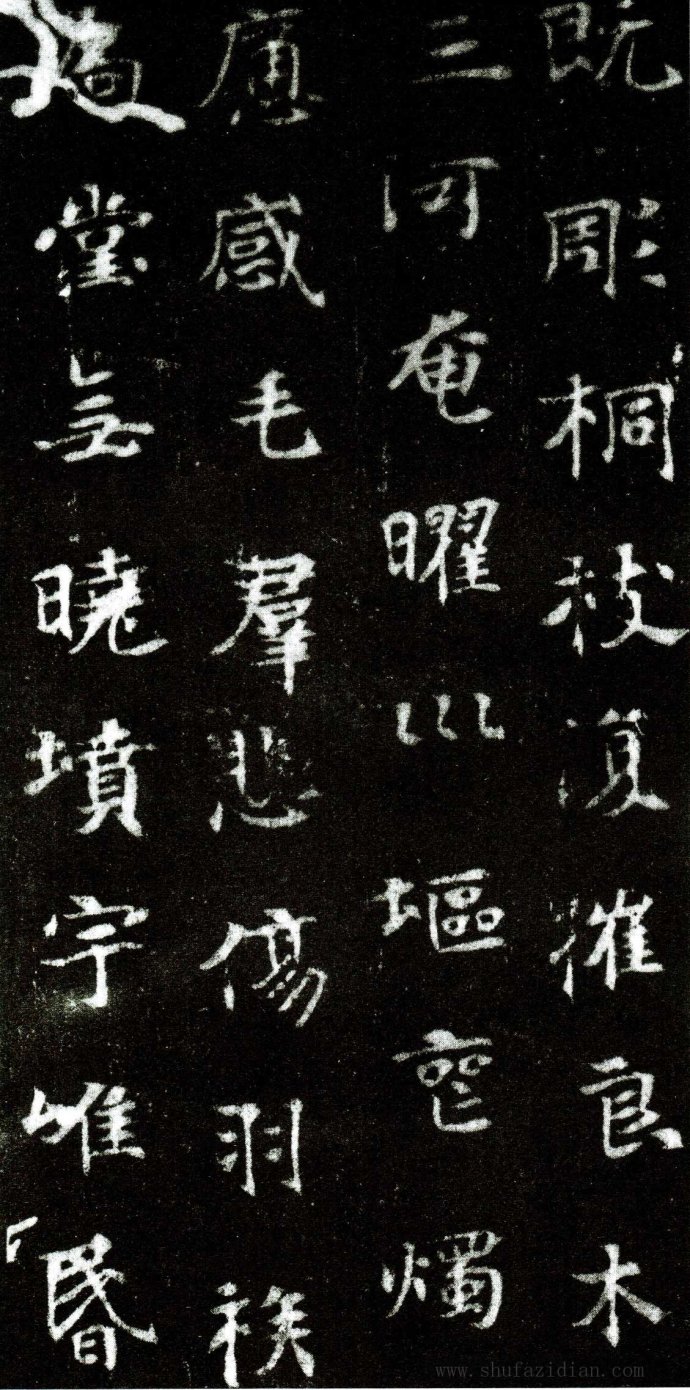 既彫桐枝復摧良木
三河奄曜巛塸燭
感毛羣悲傷羽族
堂无曉墳宇唯昬
www.shufazidian.com